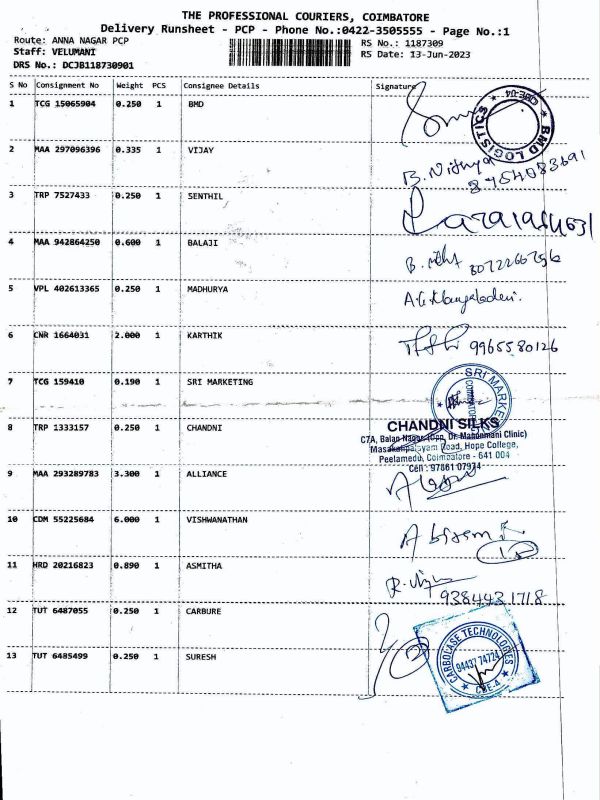 THE PROFESSIONAL COURIERS, COIMBATORE
Delivery Runsheet - PCP - Phone No.:0422-3505555 - Page No.:1
Route: ANNA NAGAR PCP
RS No.: 1187309
Staff: VELUMANI
RS Date: 13-Jun-2023
DRS No.: DCJB118730901
S No Consignment No Weight PCS Consignee Details Signature
1 TCG 15065904 0.250 1 BMD
BMD LOGISTICS ★ CBE-04 ★
2 MAA 297096396 0.335 1 VIJAY
B. Nithya
3 TRP 7527433 0.250 1 SENTHIL
4 MAA 942864250 0.600 1 BALAJI
5 VPL 402613365 0.250 1 MADHURYA
6 CNR 1664031 2.000 1 KARTHIK
9965580126
7 TCG 159410 0.190 1 SRI MARKETING
8 TRP 1333157 0.250 1 CHANDNI
CHANDNI SILKS
C7A, Balan Nagar (Opp. Dr. Mahenmani Clinic)
Masakalipalayam Road, Hope College,
Peelamedu, Coimbatore - 641 004
Cell : 97861 07974
9 MAA 293289783 3.300 1 ALLIANCE
10 CDM 55225684 6.000 1 VISHWANATHAN
11 HRD 20216823 0.890 1 ASMITHA
9384431718
12 TUT 6487055 0.250 1 CARBURE
CARBOLASE TECHNOLOGIES
94437 74724
★ CBE-4 ★
13 TUT 6485499 0.250 1 SURESH